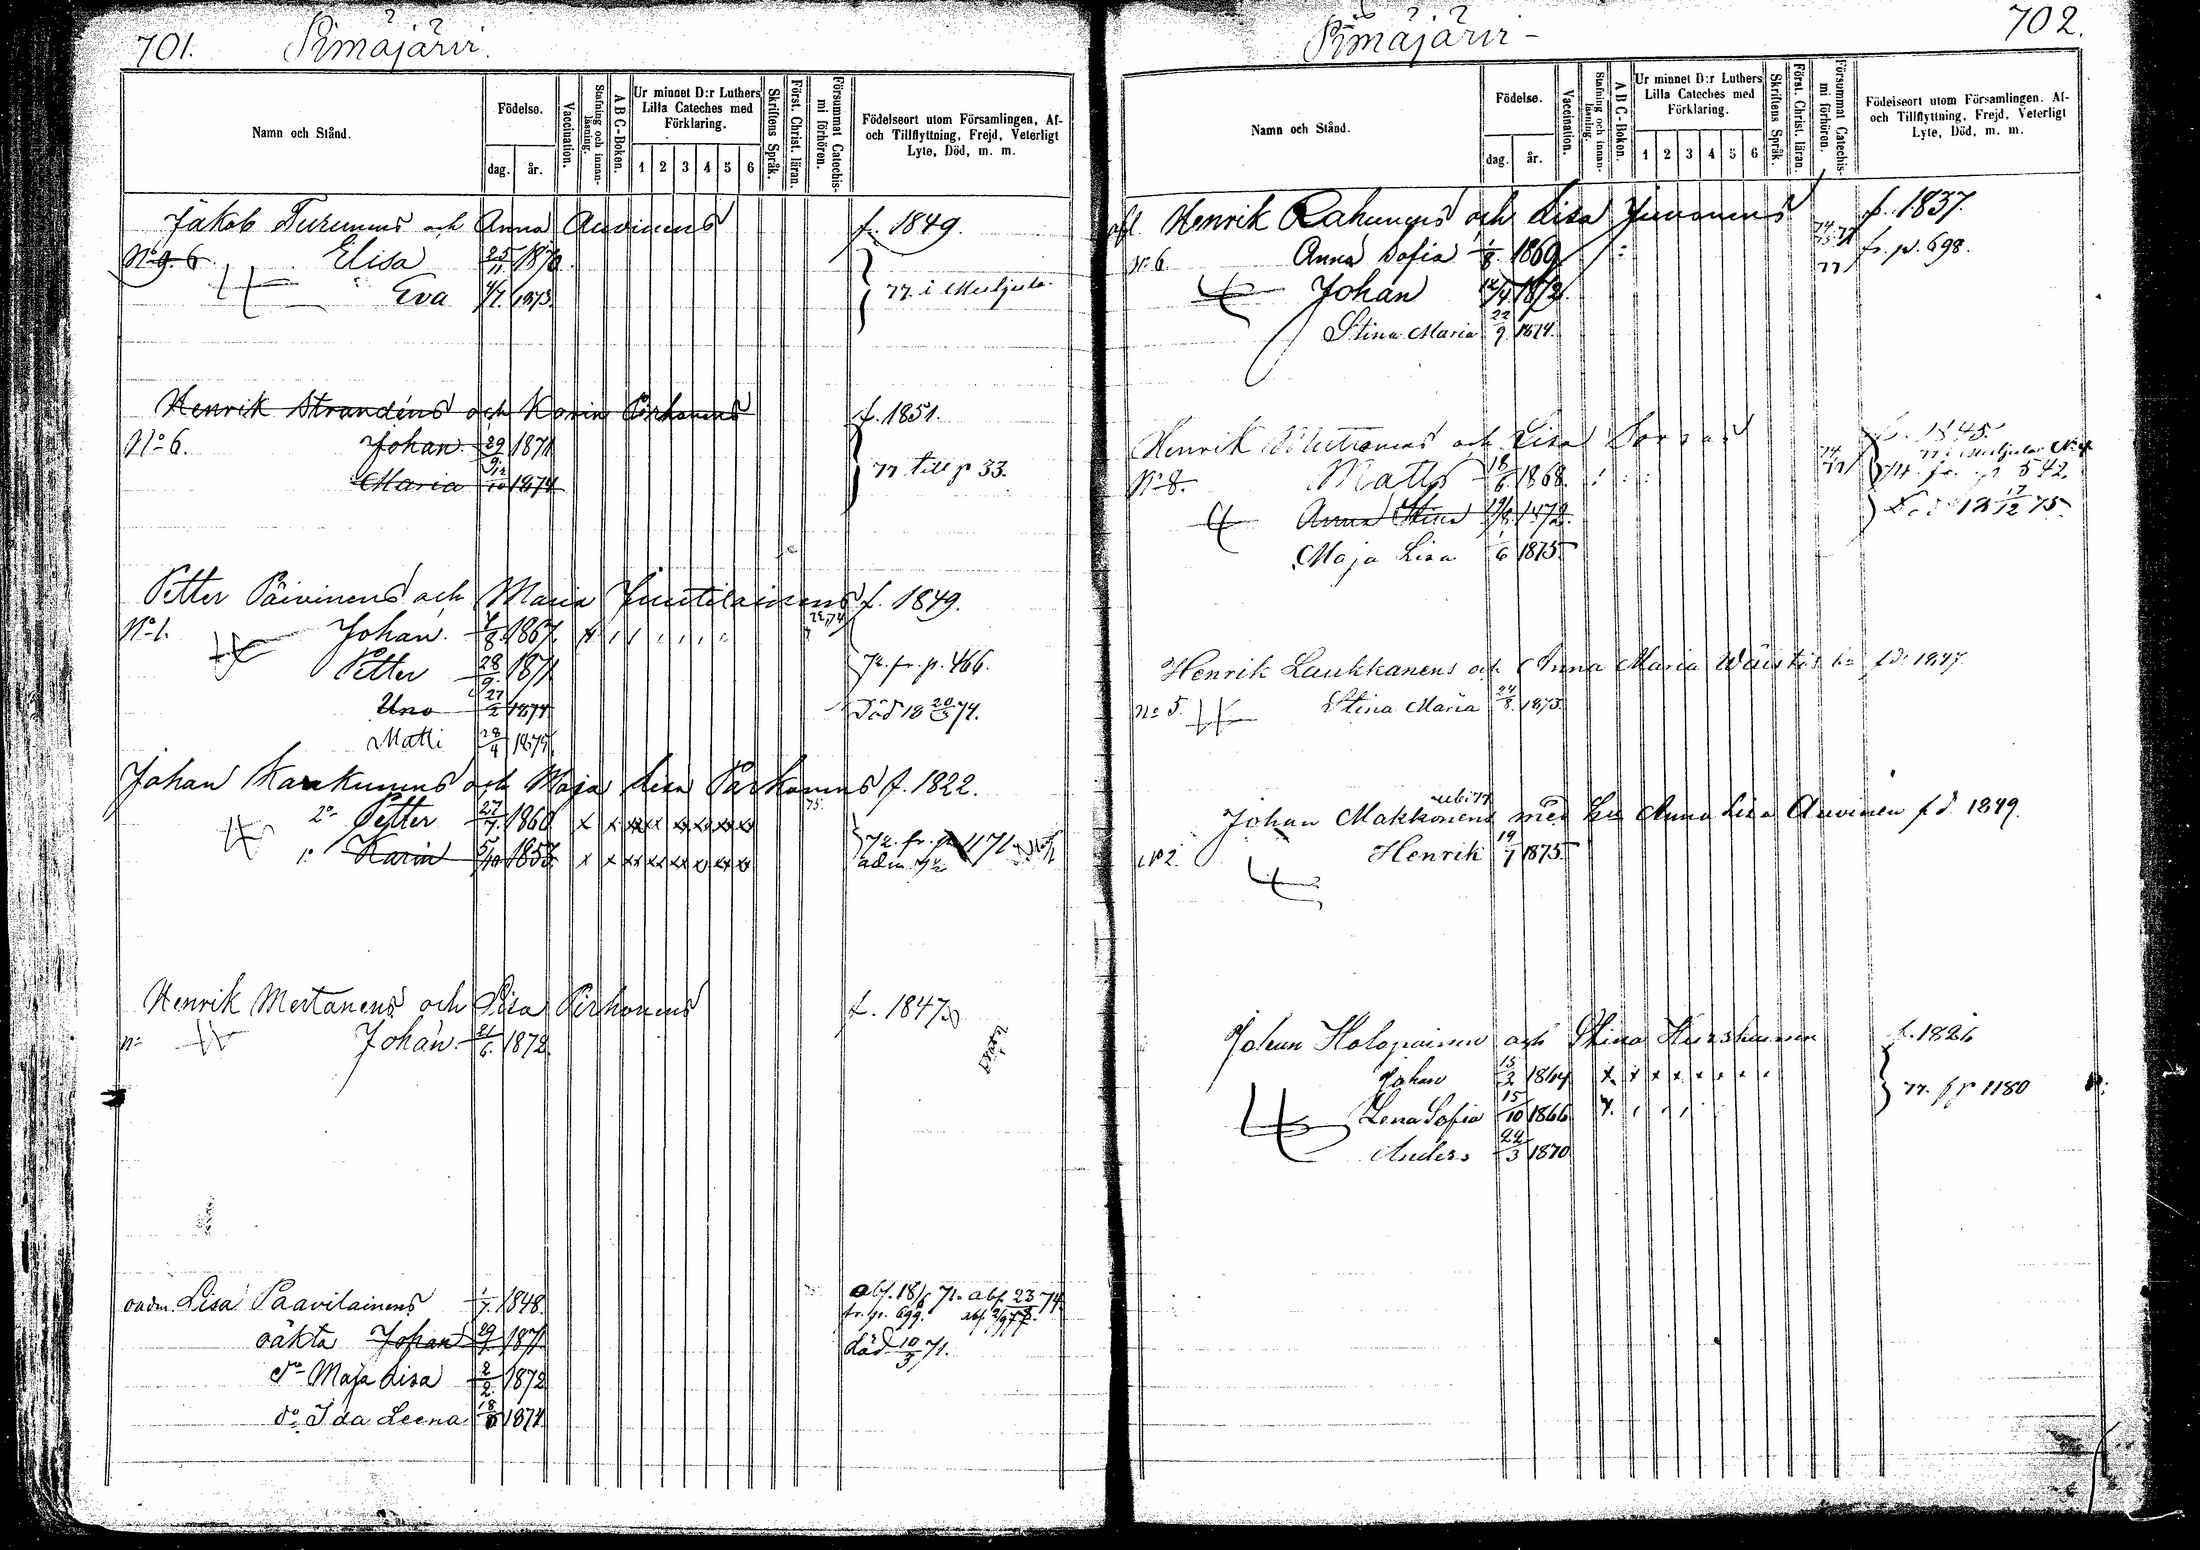 701.
Pimäjärvi.
Namn och Stånd.
Födelse.
dag.
år.
Vaccination.
Stafning och innan-läsning.
A B C-Boken.
Ur minnet D:r Luthers Lilla Cateches med Förklaring.
1 2 3 4 5 6
Skriftens Språk.
Först. Christ. läran.
Försummat Catechis-mi förhören.
Födelseort utom Församlingen, Af- och Tillflyttning, Frejd, Veterligt Lyte, Död, m. m.
Jakob Turunens och Anna Auvinens f. 1849.
No 9. 6 Elisa 25/11 1870
Eva 4/7. 1873. 77. i
Henrik Strandéns och Karin Pirhonens f. 1851.
No 6. Johan 29 1871
Maria 10 1874 77 till p 33.
Petter Päivinens och Maria Juutilainens f. 1849.
No 1. Johan 4/8 1867
Petter 28/9 1871 72. fr. p. 466.
Uno 27/2 1874 Död 18 20/3 74.
Matti 28/4 1875
Johan Karkunens och Maja Lisa Parkonens f. 1822.
2o Petter 27/7. 1860 72. fr. p 1171
1o Karin 5/10 1857 adm.
Henrik Mertanens och Lisa Pirhonens f. 1847
No Johan 21/6. 1872
Lisa Paavilainens 1/7. 1848. abs. 18/6 71. abs. 23 74
fr. p. 699.
oäkta Johan 29 1871 död 10/3 71.
do Maja Lisa 2/2 1872
do Ida Leena 18 1874
702.
Pimäjärvi
Namn och Stånd.
Födelse.
dag.
år.
Vaccination.
Stafning och innan-läsning.
A B C-Boken.
Ur minnet D:r Luthers Lilla Cateches med Förklaring.
1 2 3 4 5 6
Skriftens Språk.
Först. Christ. läran
Försummat Catechis-mi förhören.
Födelseort utom Församlingen. Af- och Tillflyttning, Frejd, Veterligt Lyte, Död, m. m.
Henrik Rahunens och Lisa Juvonens f. 1837.
No 6. Anna Sofia 1/8 1869 fr. p. 698.
Johan 12/4 1872
Stina Maria 22/9 1874.
Henrik och Lisa f. 1845.
No 8. Matts 18/6 1868. 74. fr. p 542.
Anna Stina 1872. Död 18 17/12 75.
Maja Lisa 1/6 1875
Henrik Laukkanens och Anna Maria fd. 1847
No 5. Stina Maria 24/8. 1873.
Johan Makkonens med hu Anna Lisa Auvinen fd. 1849.
No 2. Henrik 19/1 1875
Johan Holopainen och Stina f. 1826
Johan 15/2 1864
Lena Sofia 15/10 1866 77. f p 1180
Anders 22/3 1870